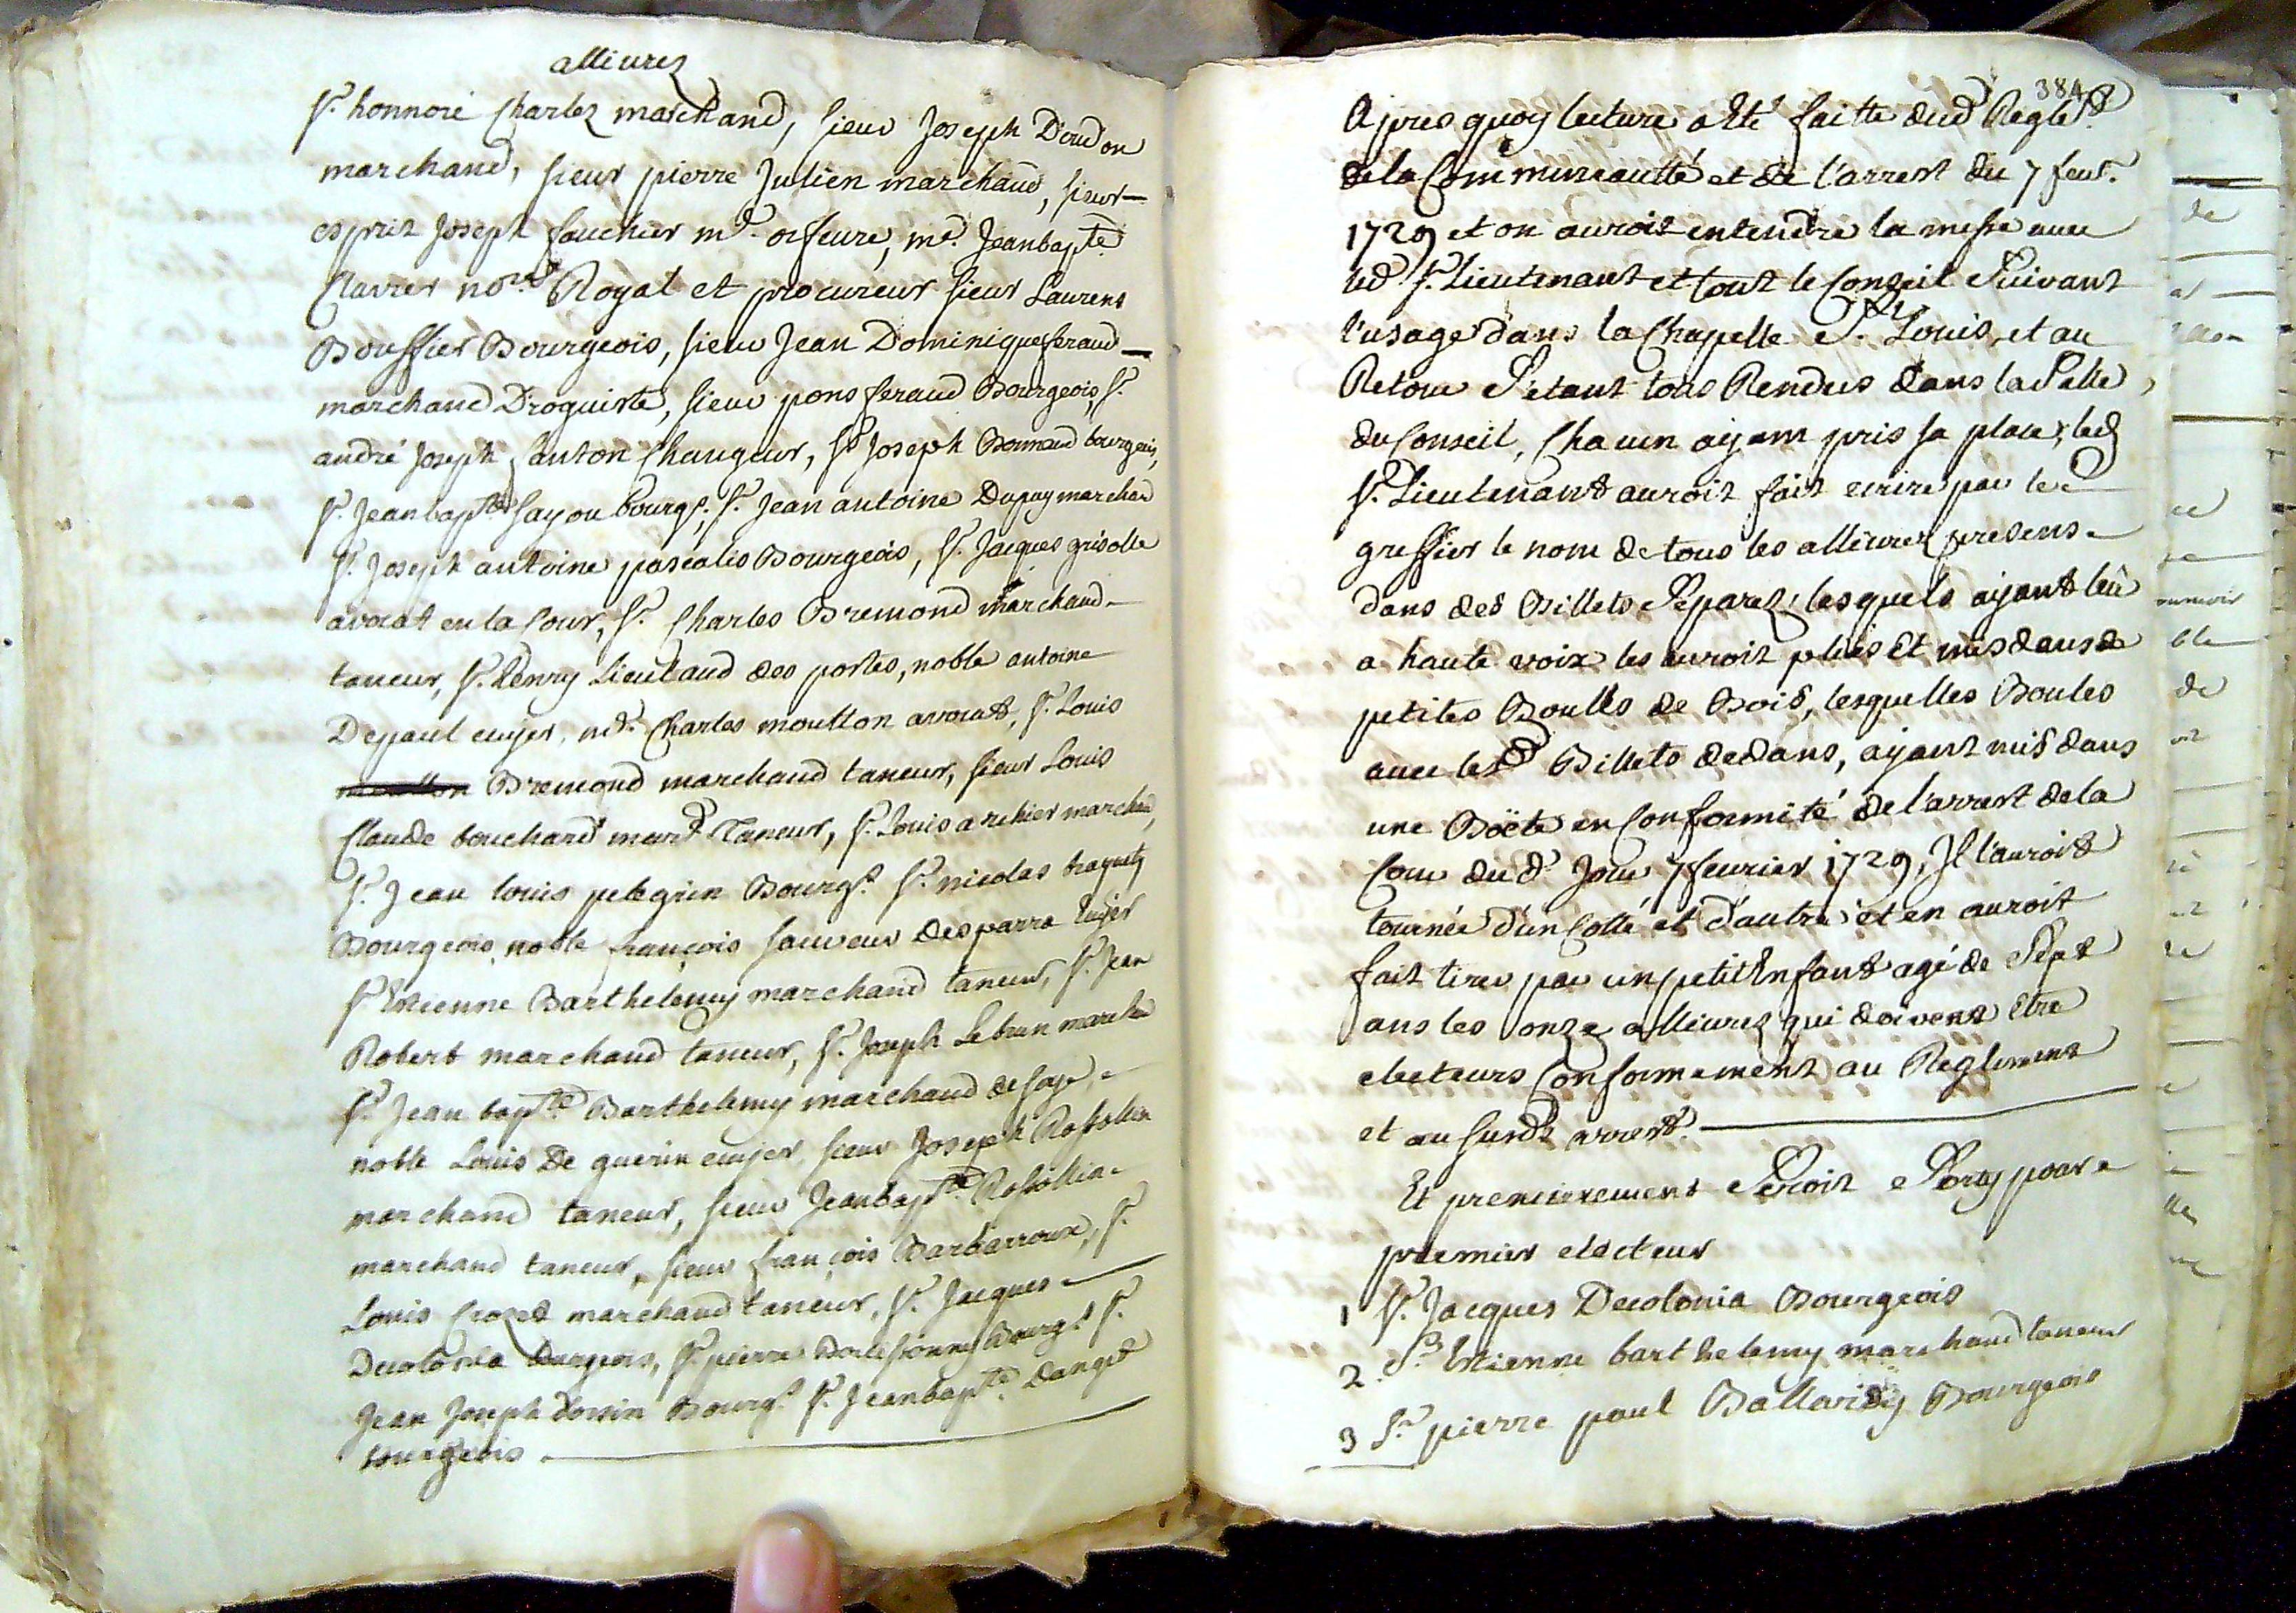 allivrez
Sr. honnoré Charlez marchand, sieur Joseph Doudon
marchand, sieur pierre Julien marchand, sieur
esprit Joseph fauchier md. orfeure, me. Jean bapte
Clavier nore. Royal et procureur sieur Laurens
Bouffier Bourgeois, sieur Jean Dominique feraud
marchand Droguiste, sieur pons feraud Bourgeois, Sr.
andré Joseph fanton Changeur, Sr Joseph Bonnaud bourgeois,
Sr. Jean bapte fayou bourgs. Sr. Jean antoine Dupuy marchand
Sr. Joseph antoine pascalis Bourgeois, Sr. Jacques grisolle
avocat en la Cour, Sr. Charles Bremond marchand
taneur, Sr. henry Lieutaud des portes, noble antoine
Depaul ecuyer, me. Charles moutton avocat, Sr. Louis
moutton Bremond marchand taneur, sieur Louis
Claude bouchard mard. taneur, Sr. Louis archier marchand,
Sr. Jean louis pelegrin Bourgs. Sr. nicolas
Bourgeois, noble françois sauveur Desparra Ecuyer
Sr Estienne Barthelemy marchand taneur, Sr. Jean
Robert marchand taneur, Sr. Joseph Lebrun marchand
Sr. Jean bapte Barthelemy marchand de soye,
noble Louis De guerin ecuyer, sieur Joseph Rossollin
marchand taneur, sieur Jean bapte Rossollin
marchand taneur, sieur françois Barbarroux, Sr.
Louis Crozet marchand taneur, Sr. Jacques
Decolonia bourgeois, Sr. pierre Bourgs. Sr.
Jean Joseph Bourgs. Sr. Jean bapte. Danget
bourgeois
384
Apres quoy lecture a Eté faitte dud. Reglet.
de la Communeautté et de l'arrest du 7 feur.
1729 et on auroit entendre la messe avec
led. Sr. Lieutenant et tout le Conseil Suivant
l'usage dans la Chapelle St. Louis, et au
Retour S'etant tous Rendus dans la Salle
du Conseil, Chacun ayant pris sa place, led.
Sr. Lieutenant auroit fait ecrire par le
greffier le nom de tous les allivrez presens
dans des Billets Separez, lesquels ayant leu
a haute voix les auroit pliés Et mis dans de
petites Boulles de Bois, lesquelles Boules
avec lesd. Billets dedans, ayant mis dans
une Boëte en Conformité de l'arrest de la
Cour dud. Jour 7 feurier 1729, Il l'auroit
tournée d'un Cotté et d'autre et en auroit
fait tirer par un petit Enfant agé de Sept
ans les onze allivrez qui doivent être
electeurs Conformement au Reglement
et au susdt. arrest.
Et premierement Seroit Sorty pour
premier electeur
1 Sr. Jacques Decolonia Bourgeois
2. Sr. Estienne barthelemy marchand taneur
3 Sr. pierre paul Ballardy Bourgeois